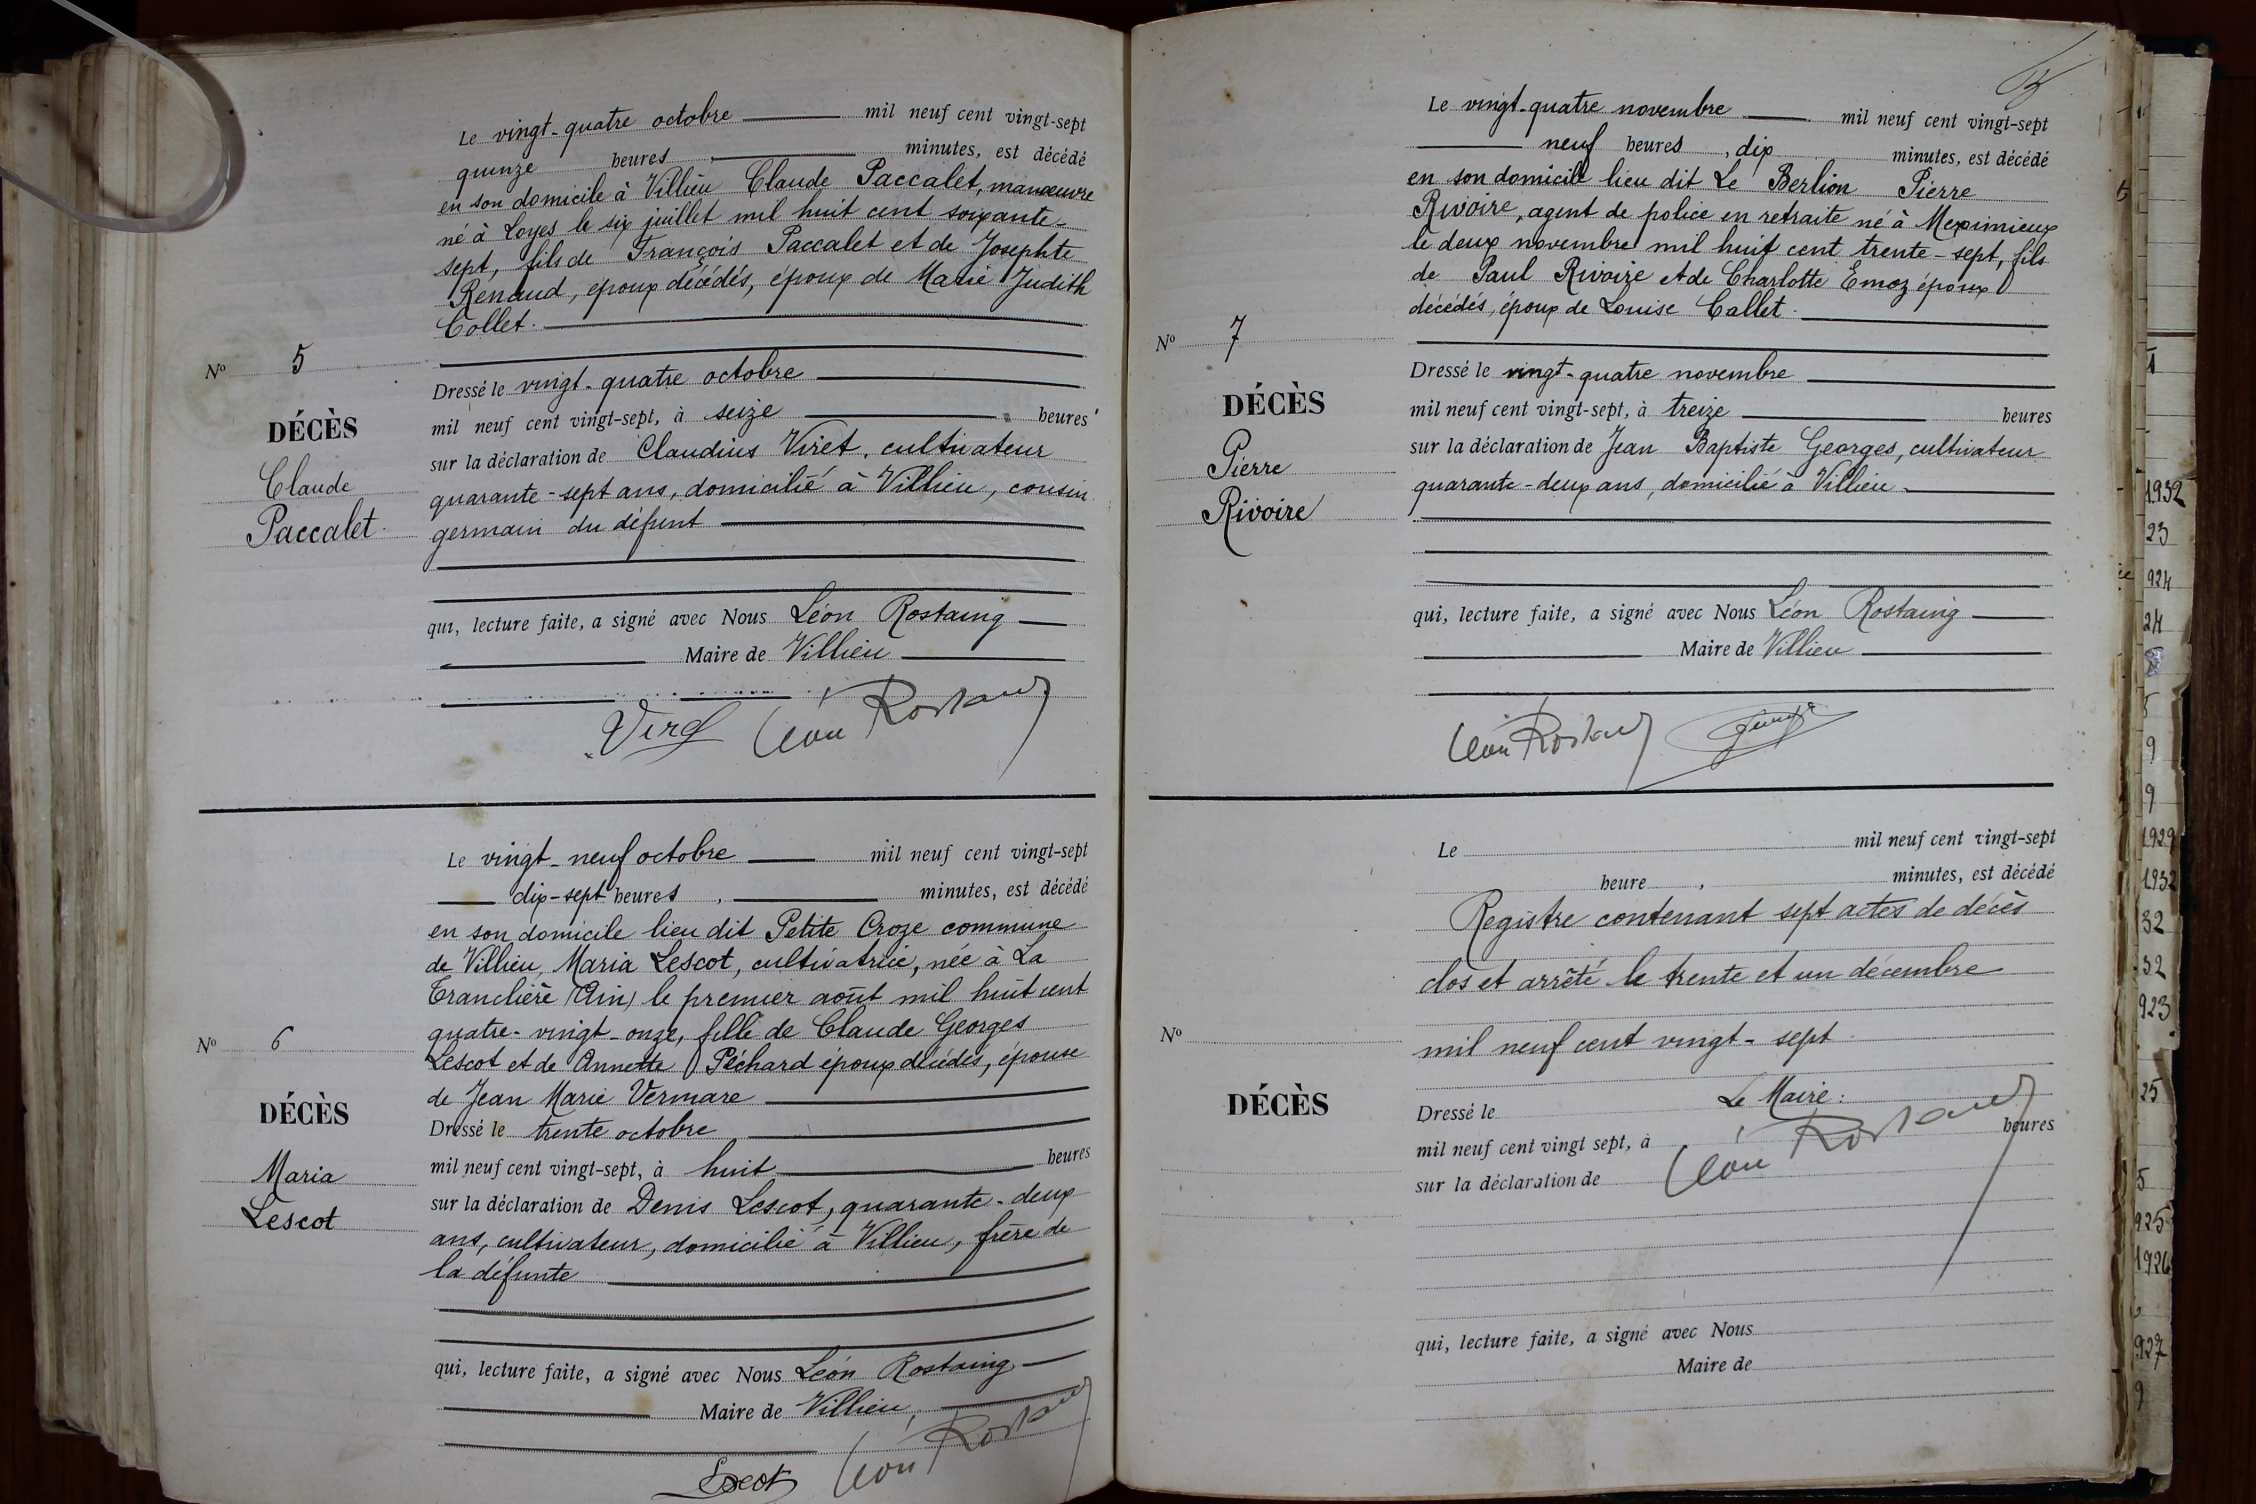 Le vingt-quatre octobre mil neuf cent vingt-sept
quinze heures , minutes, est décédé
en son domicile à Villieu Claude Paccalet, manœuvre
né à Loyes le six juillet mil huit cent soixante-
sept, fils de François Paccalet et de Josephte
Renaud, époux décédés, époux de Marie Judith
Collet.
No 5
DÉCÈS
Claude
Paccalet.
Dressé le vingt-quatre octobre
mil neuf cent vingt-sept, à seize heures
sur la déclaration de Claudius Viret, cultivateur
quarante-sept ans, domicilié à Villieu, cousin
germain du défunt
qui, lecture faite, a signé avec Nous Léon Rostaing
Maire de Villieu
Viret Léon Rostaing
Le vingt-neuf octobre mil neuf cent vingt-sept
dix-sept heures , minutes, est décédé
en son domicile lieu dit Petite Croze commune
de Villieu, Maria Lescot, cultivatrice, née à La
Tranclière (Ain) le premier août mil huit cent
quatre-vingt-onze, fille de Claude Georges
Lescot et de Annette Péchard époux décédés, épouse
de Jean Marie Vermare
No 6
DÉCÈS
Maria
Lescot
Dressé le trente octobre
mil neuf cent vingt-sept, à huit heures
sur la déclaration de Denis Lescot, quarante-deux
ans, cultivateur, domicilié à Villieu, frère de
la défunte
qui, lecture faite, a signé avec Nous Léon Rostaing
Maire de Villieu
Lescot Léon Rostaing
Le vingt-quatre novembre mil neuf cent vingt-sept
neuf heures , dix minutes, est décédé
en son domicile lieu dit Le Berlion Pierre
Rivoire, agent de police en retraite né à Meximieux
le deux novembre mil huit cent trente-sept, fils
de Paul Rivoire et de Charlotte Emoz époux
décédés, époux de Louise Callet.
No 7
DÉCÈS
Pierre
Rivoire
Dressé le vingt-quatre novembre
mil neuf cent vingt-sept, à treize heures
sur la déclaration de Jean Baptiste Georges, cultivateur
quarante-deux ans, domicilié à Villieu
qui, lecture faite, a signé avec Nous Léon Rostaing
Maire de Villieu
Léon Rostaing Georges
Le mil neuf cent vingt-sept
heure , minutes, est décédé
Registre contenant sept actes de décès
clos et arrêté le trente et un décembre
mil neuf cent vingt-sept
No
DÉCÈS
Le Maire :
Dressé le
mil neuf cent vingt sept, à heures
Léon Rostaing
sur la déclaration de
qui, lecture faite, a signé avec Nous
Maire de
1932
23
924
24
9
9
1929
1932
32
32
923
25
5
925
1926
927
9